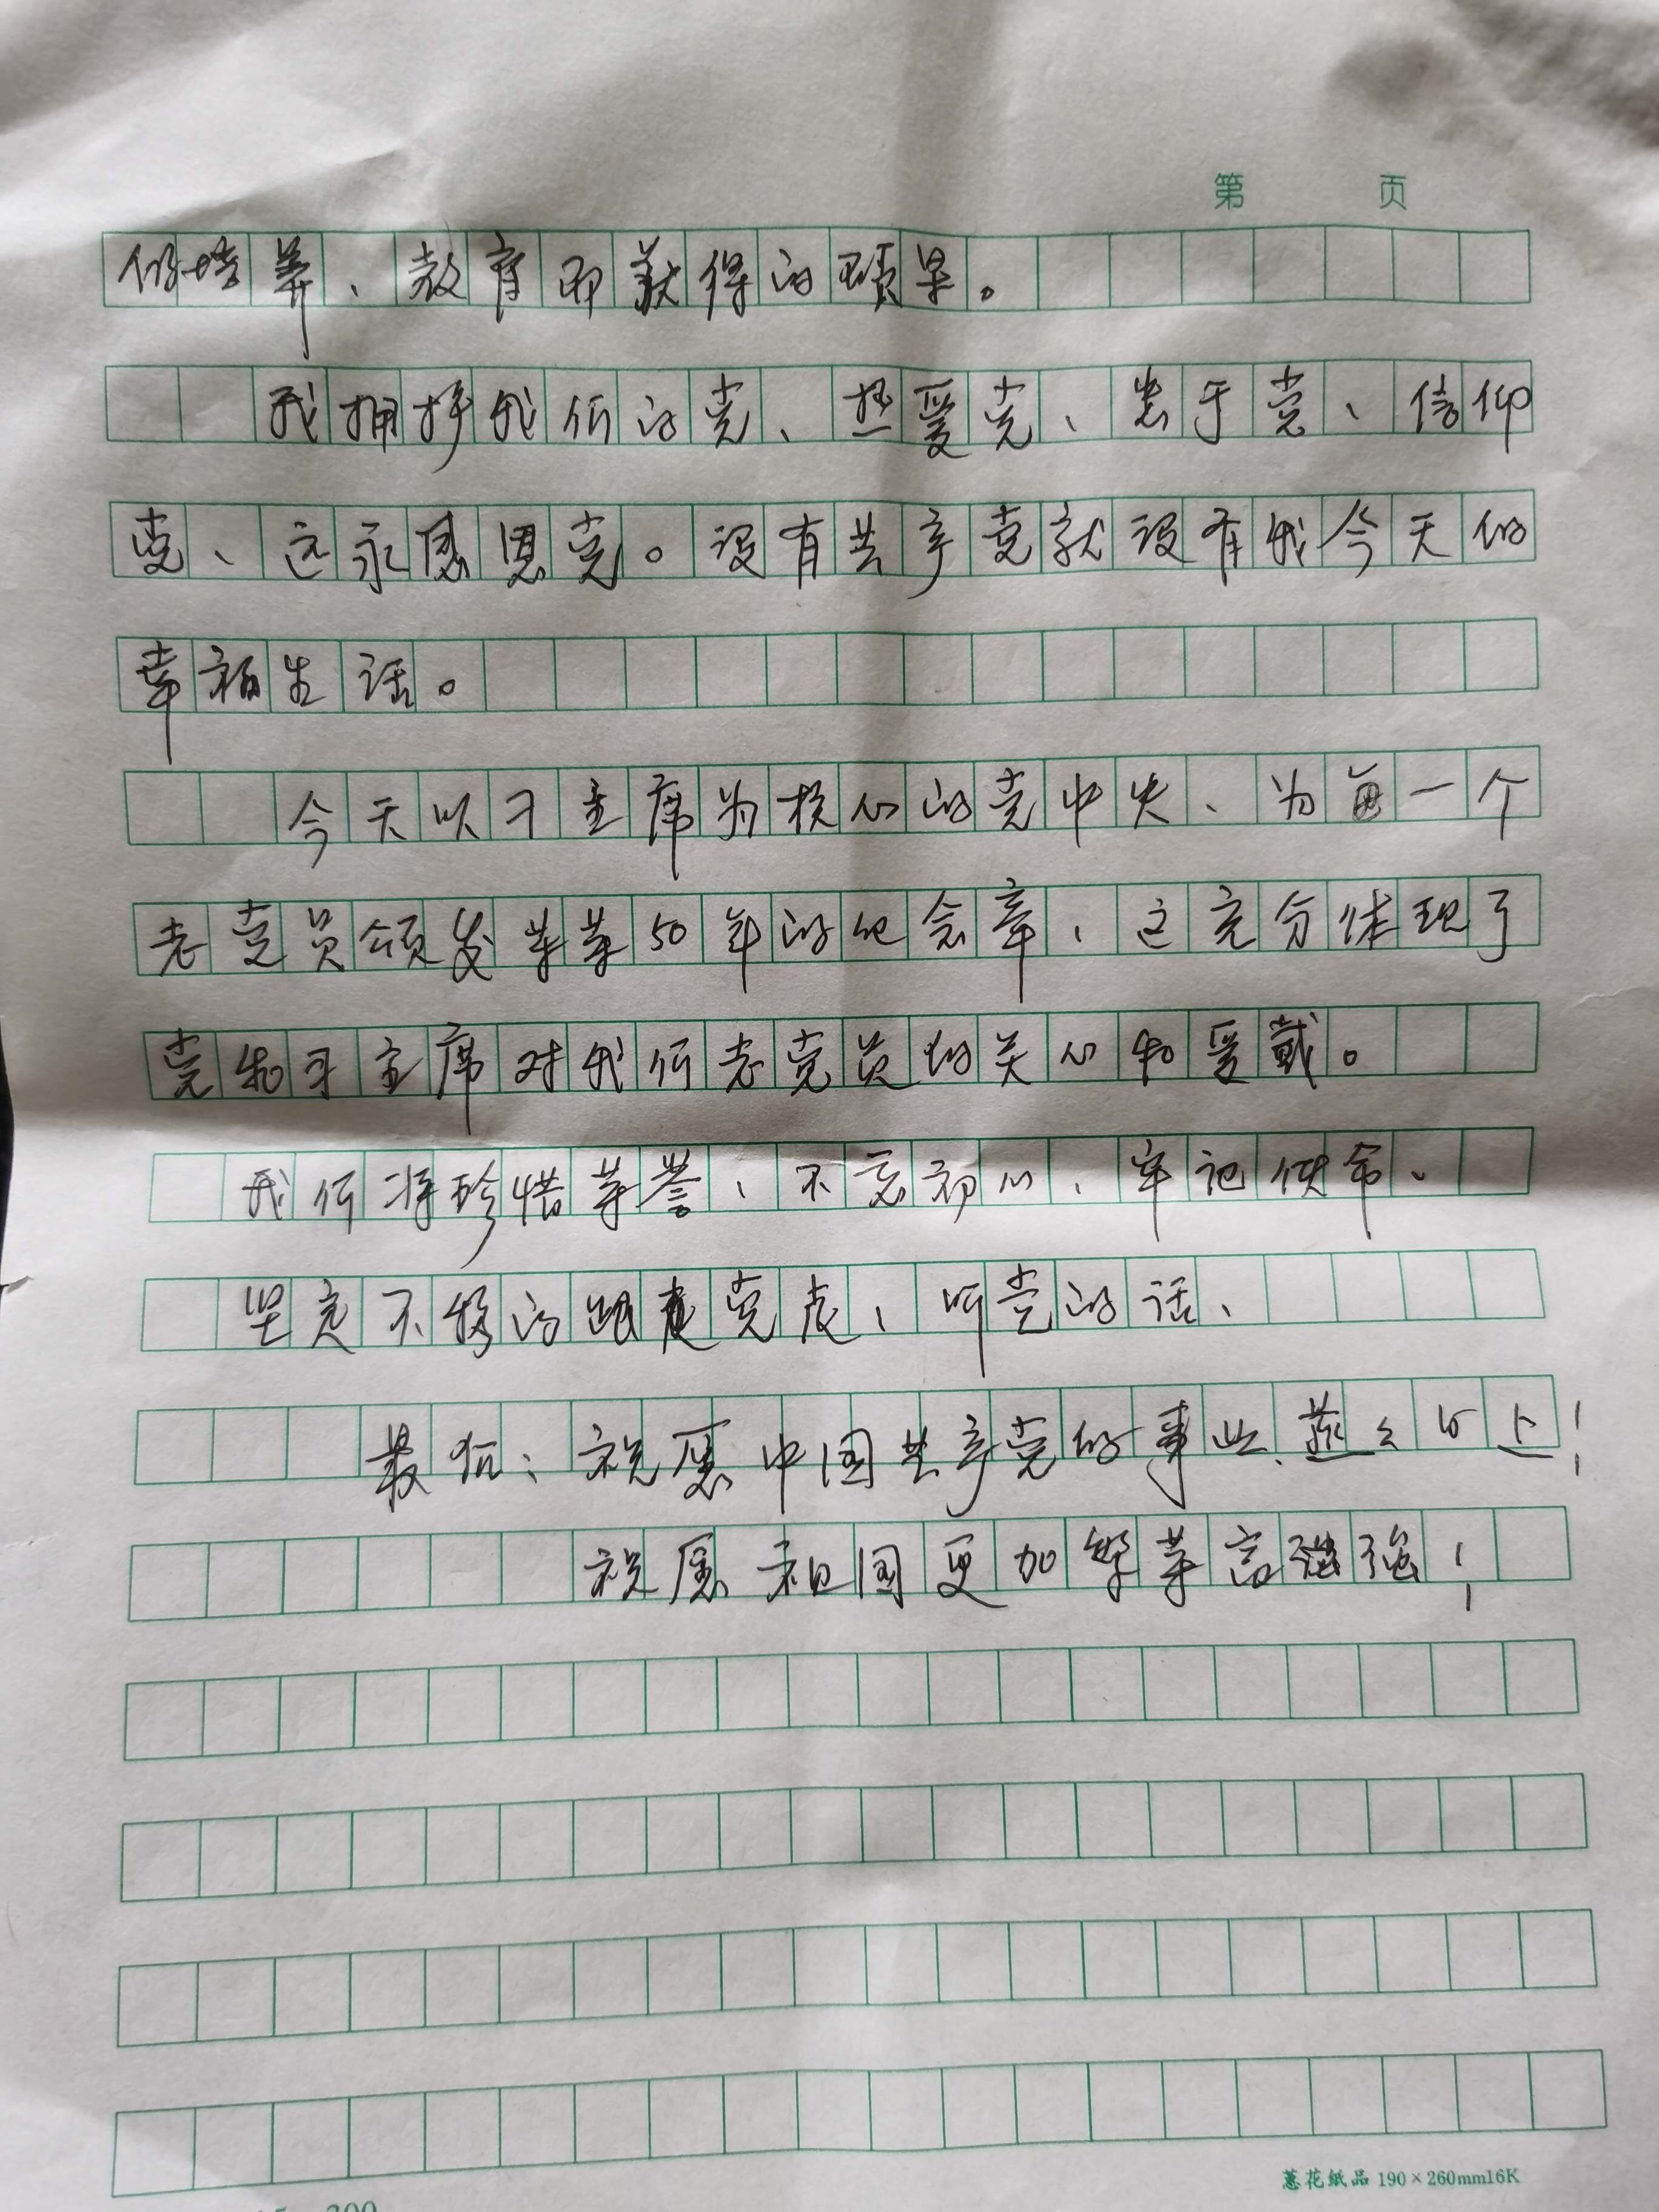 第 页
的培养、教育而获得的硕果。
我拥护我们的党、热爱党、忠于党、信仰
党、远永感恩党。没有共产党就没有我今天的
幸福生活。
今天以习主席为核心的党中央、为每一个
老党员颁发光荣50年的纪念章、这充分体现了
党和习主席对我们老党员的关心和爱戴。
我们将珍惜荣誉、不忘初心、牢记使命、
坚定不移的跟党走、听党的话、
最后:祝愿中国共产党的事业蒸蒸日上!
祝愿祖国更加繁荣富强!
蔥花纸品 190×260mm16K